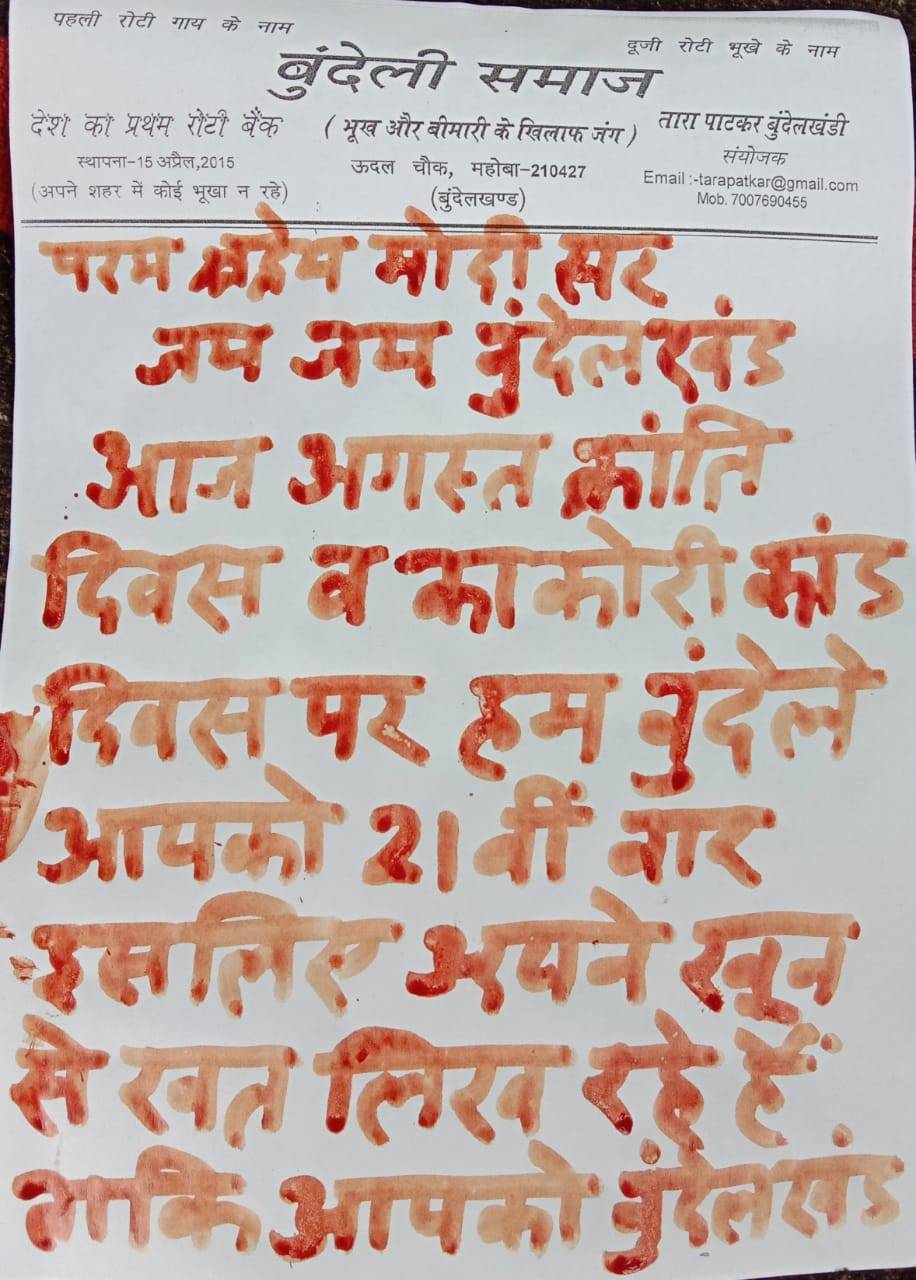 पहली रोटी गाय के नाम
दूजी रोटी भूखे के नाम
बुंदेली समाज
देश का प्रथम रोटी बैंक
( भूख और बीमारी के खिलाफ जंग )
तारा पाटकर बुंदेलखंडी
स्थापना-15 अप्रैल,2015
ऊदल चौक, महोबा-210427
संयोजक
(अपने शहर में कोई भूखा न रहे)
(बुंदेलखण्ड)
Email :-tarapatkar@gmail.com
Mob. 7007690455
परम श्रद्धेय मोदी सर
जय जय बुंदेलखंड
आज अगस्त क्रांति
दिवस व काकोरी कांड
दिवस पर हम बुंदेले
आपको 21 वीं बार
इसलिए अपने खून
से खत लिख रहे हैं
ताकि आपको बुंदेलखंड